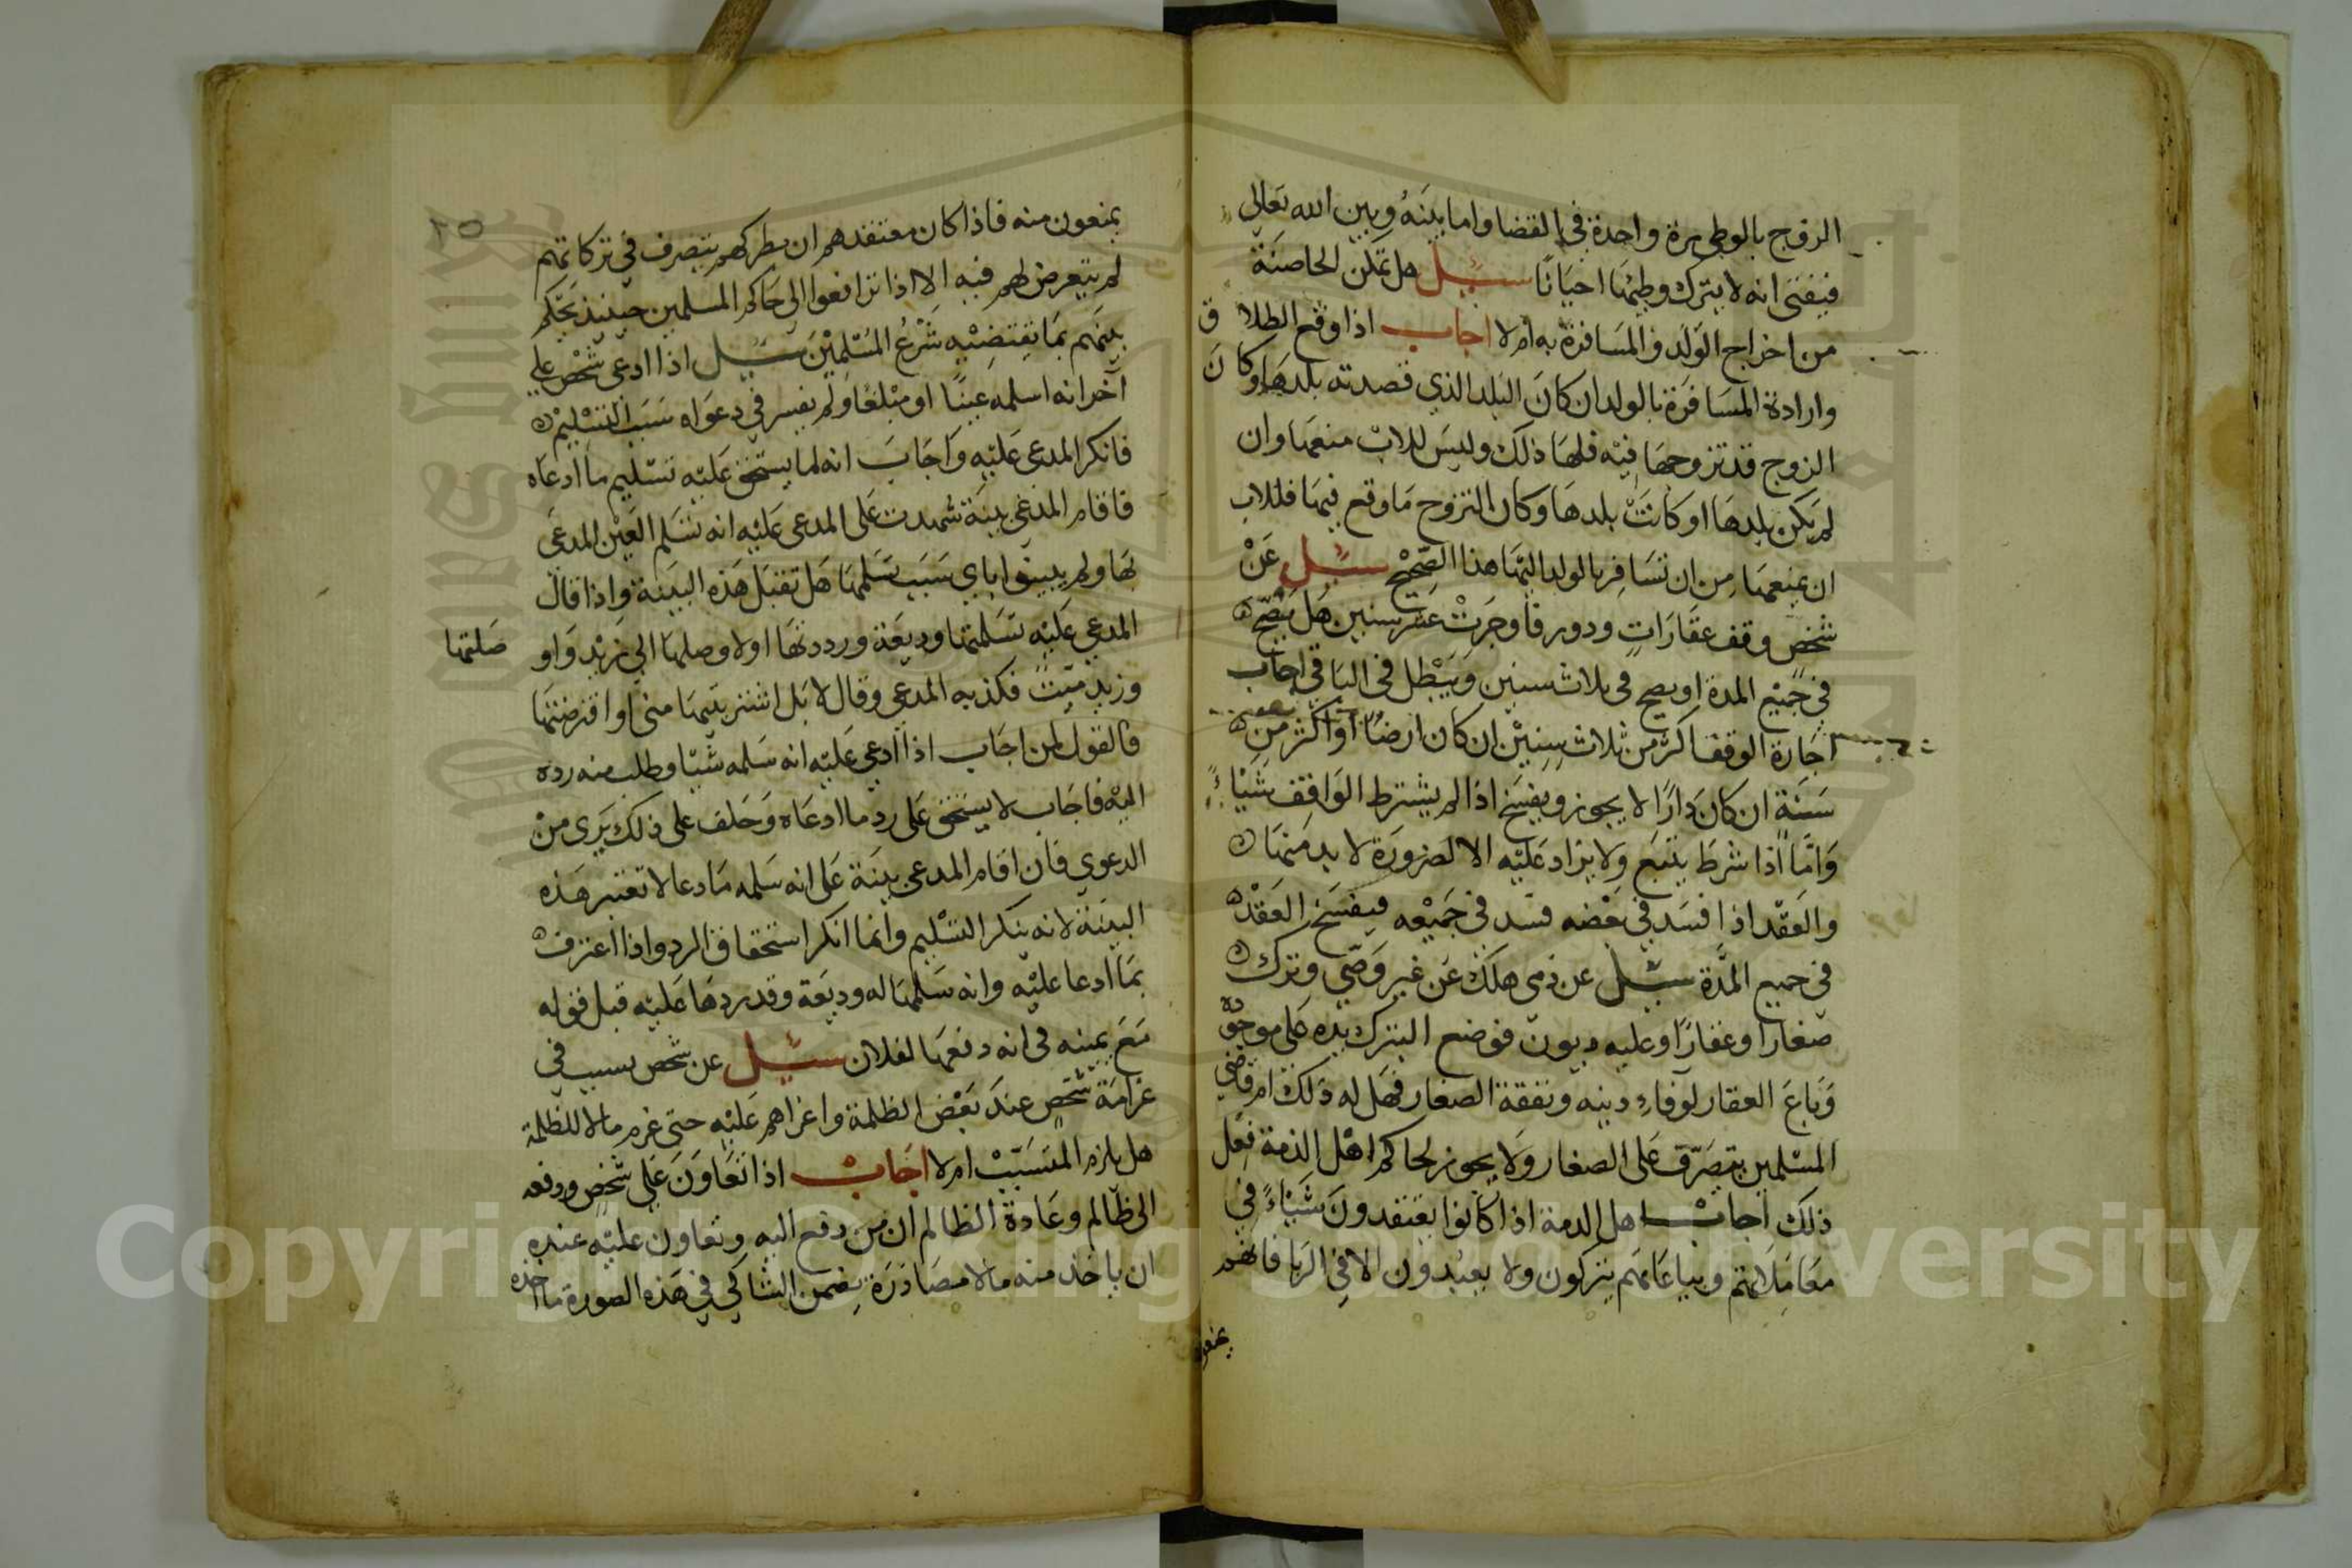 الزوج بالوطي مرة واحدة في القضا واما بينه وبين الله تعالي
فيفتى انه لا يترك وطيها احيانا سيل هل تمكن الحاضنة
من اخراج الولد والمسافرة به ام لا اجاب اذا وقع الطلاق
وارادة المسافرة بالولد ان كان البلد الذي قصدته بلدها وكان
الزوج قد تزوجها فيه فلها ذلك وليس للاب منعها وان
لم يكن بلدها او كانت بلدها وكان التزوج ما وقع فيها فللاب
ان يمنعها من ان تسافر بالولد اليها هذا الصحيح سيل عن
شخص وقف عقارات ودور فاوجرت عشر سنين هل يصح
في جميع المدة او يصح في ثلاث سنين ويبطل في الباقي اجاب
اجارة الوقف اكثر من ثلاث سنين ان كان ارضا او اكثر من
سنة ان كان دارا لا يجوز ويفسخ اذا لم يشترط الواقف شياء
واما اذا شرط يتبع ولا يزاد عليه الا لضرورة لا بد منها
والعقد اذا فسد في بعضه فسد في جميعه فيفسخ العقد
في جميع المدة سيل عن ذمي هلك عن غير وصي وترك
صغارا وعقارا وعليه ديون فوضع البترك يده على موجوده
وباع العقار لوفاء دينه ونفقة الصغار فهل له ذلك ام قاضي
المسلمين يتصرف على الصغار ولا يجوز لحاكم اهل الذمة فعل
ذلك اجاب اهل الذمة اذا كانوا يعتقدون شياء في
معاملاتهم وبياعاتهم يتركون ولا يعبدون الا في الربا فانهم
يمنعون
٢٥
يمنعون منه فاذا كان معتقدهم ان بطركهم يتصرف في تركاتهم
لم يتعرض لهم فيه الا اذا ترافعوا الى حاكم المسلمين حينيذ يحكم
بينهم بما تقتضيه شرع المسلمين سيل اذا ادعى شخص على
آخر انه اسلمه عينا او مبلغا ولم يفسر في دعواه سبب التسليم
فانكر المدعى عليه واجاب انه لما يستحق عليه تسليم ما ادعاه
فاقام المدعي بينة شهدت على المدعى عليه انه تسلم العين المدعى
بها ولم يبينوا باي سبب تسلمها هل تقبل هذه البينة واذا قال
المدعى عليه تسلمتها وديعة ورددتها او لا وصلها الي زيد واو صلتها
وزيد ميت فكذبه المدعي وقال لا بل اشتريتها مني او اقترضتها
فالقول لمن اجاب اذا ادعي عليه انه سلمه شيا وطلب منه رده
اليه فاجاب لا يستحق على رد ما ادعاه وحلف على ذلك يرى من
الدعوي فان اقام المدعي بينة على انه سلمه ما دعا لا تعتبر هذه
البينة لانه ينكر التسليم وانما انكر استحقاق الرد واذا اعترف
بما ادعا عليه وانه سلمها له وديعة وقد ردها عليه قبل قوله
مع يمينه في انه دفعها لفلان سيل عن شخص تسبب في
غرامة شخص عند بعض الظلمة واغراهم عليه حتى غرم مالا للظلمة
هل يلزم المتسبب ام لا اجاب اذا تعاون على شخص ودفعه
الى ظالم وعادة الظالم ان من دفع اليه وتعاون عليه عنده
ان ياخذ منه مالا مصادرة يضمن الشاكي في هذه الصورة ما اخذه
Copyright © King Saud University